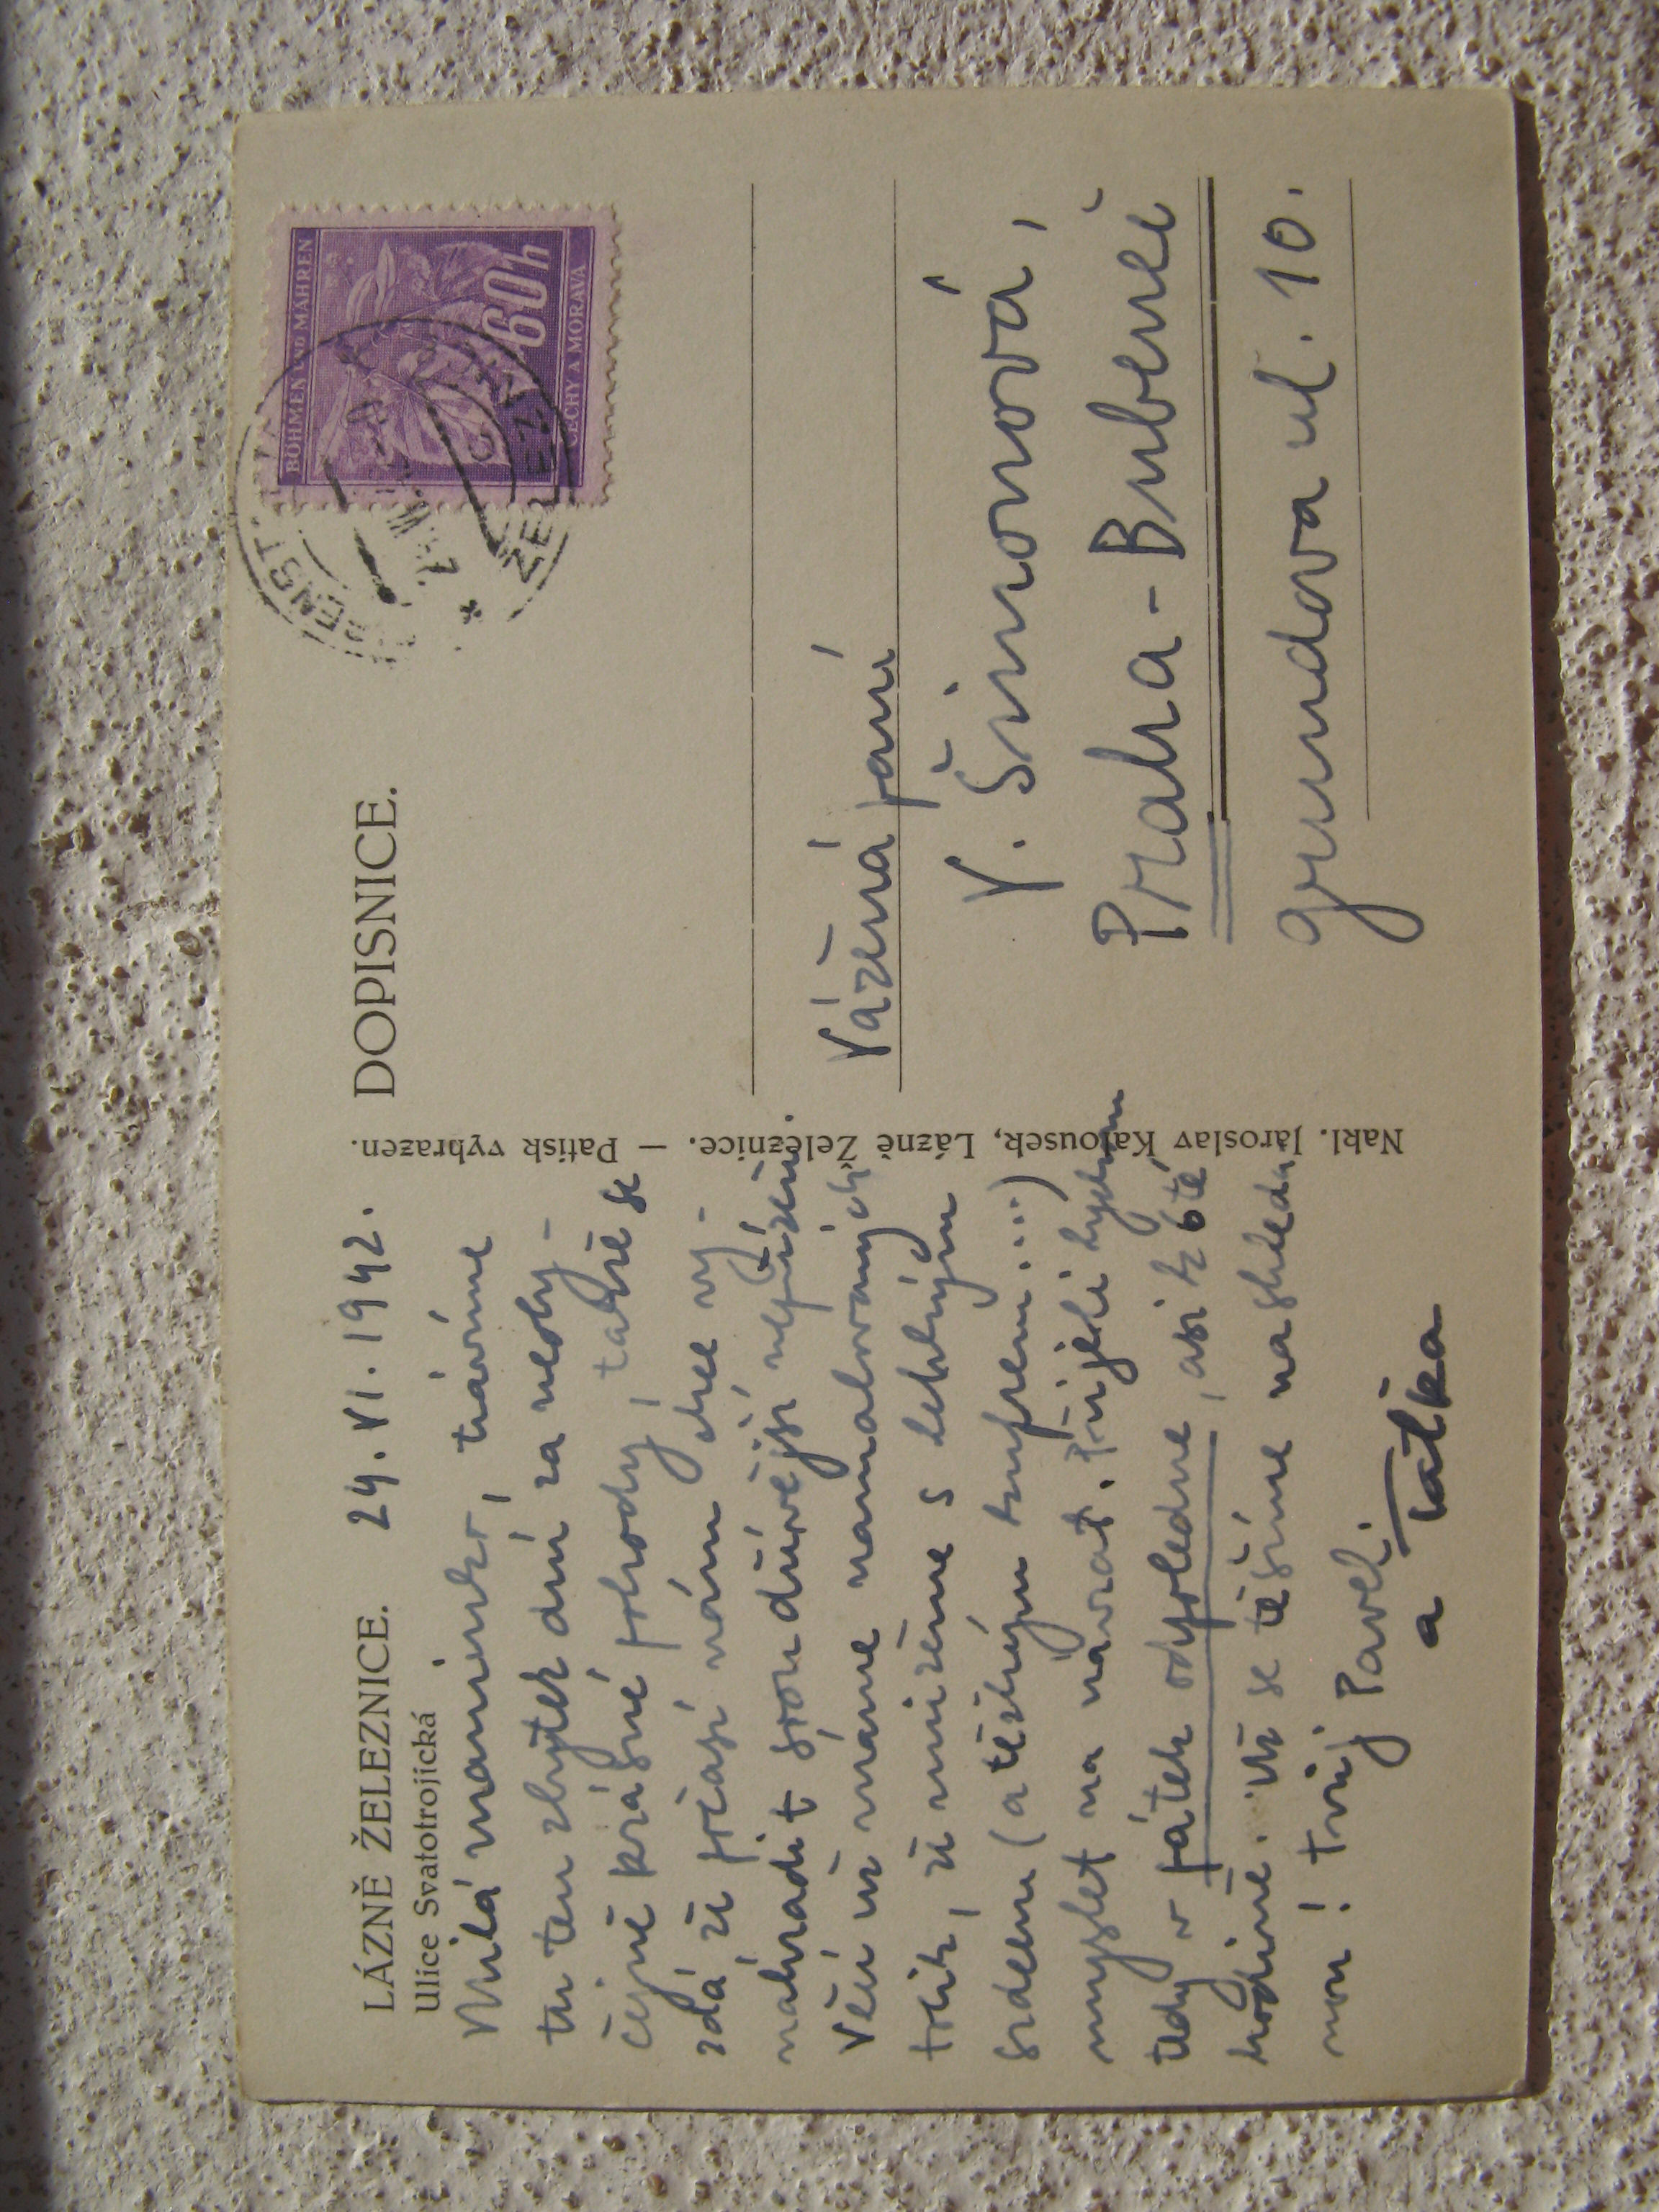 LÁZNĚ ŽELEZNICE. 24. VI. 1942.
Ulice Svatotrojická
Milá maminko, trávíme
tu ten zbytek dní za neoby-
čejně krásné pohody, takže se
zdá že počasí nám chce vy-
nahradit svou dřívější nepřízeň.
Věcí už máme namalovaných
tolik, že můžeme s lehkým
srdcem (a těžkým kufrem....)
myslet na návrat. Přijeli bychom
tedy v pátek odpoledne, asi k 6té
hodině. Už se těšíme na shledá
nou! Tvůj Pavel.
a Taťka
DOPISNICE.
Nakl. Jaroslav Kalousek, Lázně Železnice. — Patisk vyhrazen.
BÖHMEN UND MÄHREN
60h
ČECHY A MORAVA
Vážená paní
V. Šimonová,
Praha - Bubeneč
Grundova ul. 10.